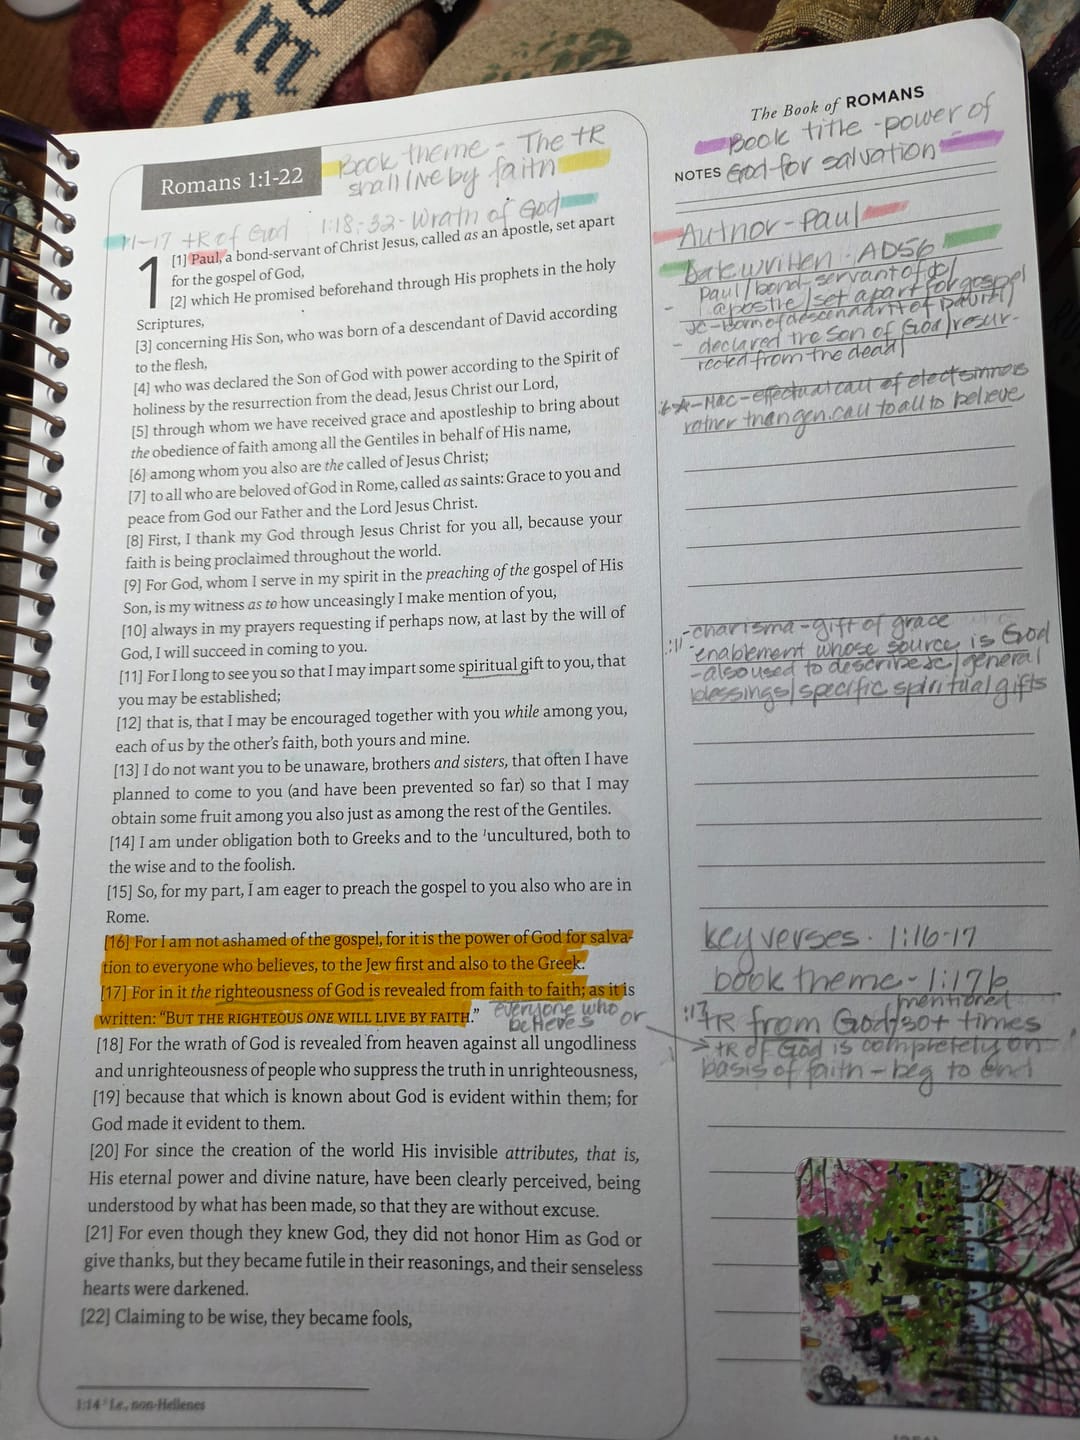 The Book of ROMANS
Book title - power of
NOTES God for salvation
Romans 1:1-22
Book theme - The tR
shall live by faith
1:1-17 tR of God 1:18-32 - Wrath of God
1 [1] Paul, a bond-servant of Christ Jesus, called as an apostle, set apart
for the gospel of God,
[2] which He promised beforehand through His prophets in the holy
Scriptures,
[3] concerning His Son, who was born of a descendant of David according
to the flesh,
[4] who was declared the Son of God with power according to the Spirit of
holiness by the resurrection from the dead, Jesus Christ our Lord,
[5] through whom we have received grace and apostleship to bring about
the obedience of faith among all the Gentiles in behalf of His name,
[6] among whom you also are the called of Jesus Christ;
[7] to all who are beloved of God in Rome, called as saints: Grace to you and
peace from God our Father and the Lord Jesus Christ.
[8] First, I thank my God through Jesus Christ for you all, because your
faith is being proclaimed throughout the world.
[9] For God, whom I serve in my spirit in the preaching of the gospel of His
Son, is my witness as to how unceasingly I make mention of you,
[10] always in my prayers requesting if perhaps now, at last by the will of
God, I will succeed in coming to you.
[11] For I long to see you so that I may impart some spiritual gift to you, that
you may be established;
[12] that is, that I may be encouraged together with you while among you,
each of us by the other's faith, both yours and mine.
[13] I do not want you to be unaware, brothers and sisters, that often I have
planned to come to you (and have been prevented so far) so that I may
obtain some fruit among you also just as among the rest of the Gentiles.
[14] I am under obligation both to Greeks and to the ᶦuncultured, both to
the wise and to the foolish.
[15] So, for my part, I am eager to preach the gospel to you also who are in
Rome.
[16] For I am not ashamed of the gospel, for it is the power of God for salva-
tion to everyone who believes, to the Jew first and also to the Greek.
[17] For in it the righteousness of God is revealed from faith to faith; as it is
written: "BUT THE RIGHTEOUS ONE WILL LIVE BY FAITH."
everyone who
believes or
[18] For the wrath of God is revealed from heaven against all ungodliness
and unrighteousness of people who suppress the truth in unrighteousness,
[19] because that which is known about God is evident within them; for
God made it evident to them.
[20] For since the creation of the world His invisible attributes, that is,
His eternal power and divine nature, have been clearly perceived, being
understood by what has been made, so that they are without excuse.
[21] For even though they knew God, they did not honor Him as God or
give thanks, but they became futile in their reasonings, and their senseless
hearts were darkened.
[22] Claiming to be wise, they became fools,
1:14 ᶦ I.e., non-Hellenes
Author - Paul
Date written - AD56
- Paul/bond-servant of JC/
apostle/set apart for gospel
JC - Born of descendant of David/
- declared the Son of God/resur-
rected from the dead/
- Mac - effectual call of elect sinners
rather than gen. call to all to believe
:11 - charisma - gift of grace
- enablement whose source is God
- also used to describe JC/general
blessings/specific spiritual gifts
key verses - 1:16-17
book theme - 1:17b
mentioned
:17 tR from God/30+ times
tR of God is completely on
basis of faith - beg to end